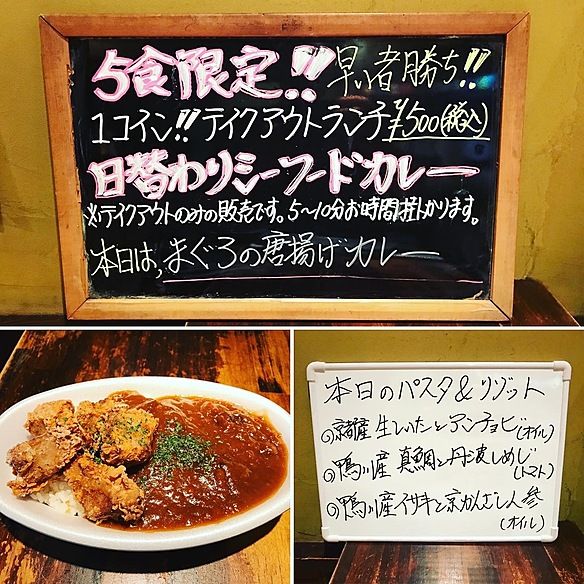 5食限定!! 早い者勝ち!!
1コイン!! テイクアウトランチ ¥500(税込)
日替わりシーフードカレー
※テイクアウトのみの販売です。5〜10分お時間掛かります。
本日は、まぐろの唐揚げカレー
本日のパスタ&リゾット
産 生しいたけとアンチョビ(オイル)
鴨川産 真鯛と丹波しめじ(トマト)
鴨川産 イサキと京かんざし人参(オイル)